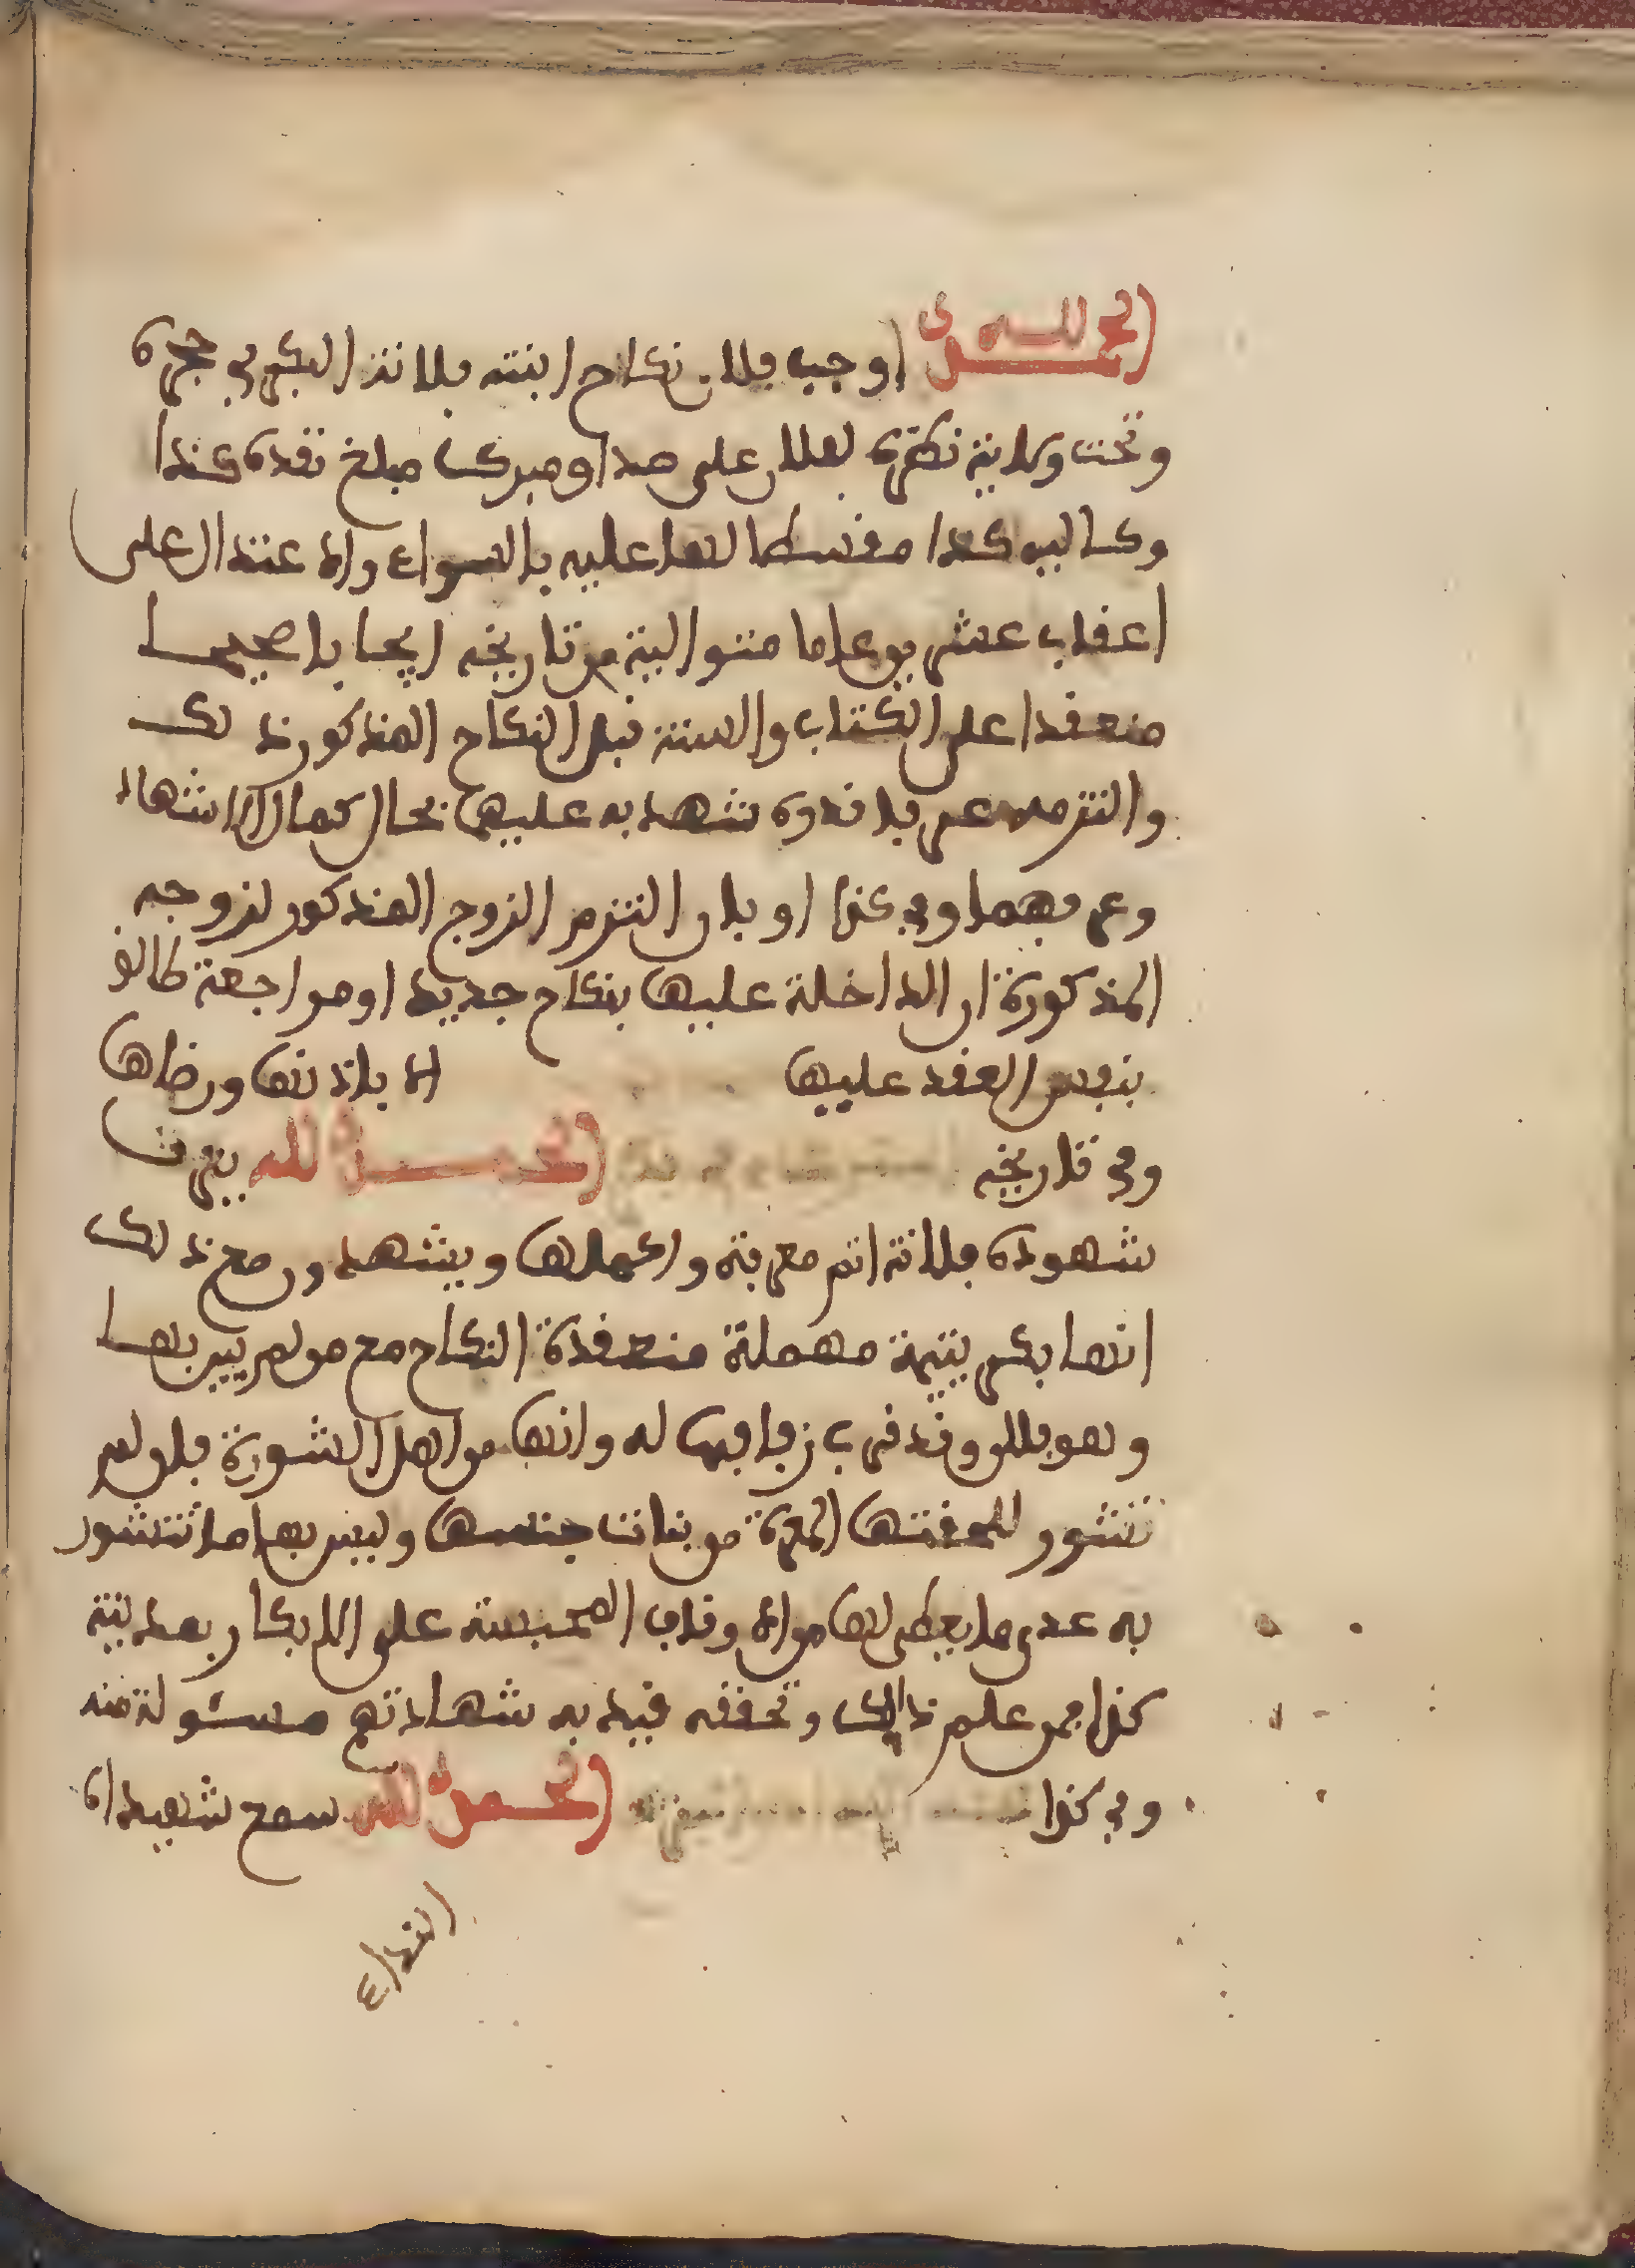 الحمد لله اوجب فلان نكاح ابنته فلانة البكر في حجره
وتحت ولاية نظره لفلان على صداق مبركا مبلغ نقده كذا
وكاليه كذا مقسطا لها عليه بالسواء والاعتدال على
اعقاب عشرين عاما متوالية من تاريخه ايجابا صحيحا
منعقدا على الكتاب والسنة قبل النكاح المذكور ذلك
والتزمه عن فلان قدره شهد به عليهما بحال كمال الاشهاد
وعرفهما وفي كذا او بان التزم الزوج المذكور لزوجه
المذكورة ان الداخلة عليها بنكاح جديد او مراجعة طالق
بنفس العقد عليها الا باذنها ورضاها
وفي تاريخه الحمد لله يعرف
شهوده فلانة اتم معرفة واكملها ويشهدون مع ذلك
انها بكر يتيمة مهملة منعقدة النكاح مع من لم يبن بها
وهو فلان وقد قرب زفافها له وانها من اهل الشورة فان لم
تتشور للحقتها المعرة من بنات جنسها وليس بها ما تتشور
به عدى ما يعطى لها من الاوقاف المحبسة على الابكار بمدينة
كذا فمن علم ذالك وتحققه قيد به شهادتهم مسئولة منه
وفي كذا الحمد لله سمع شهيداه
النداء